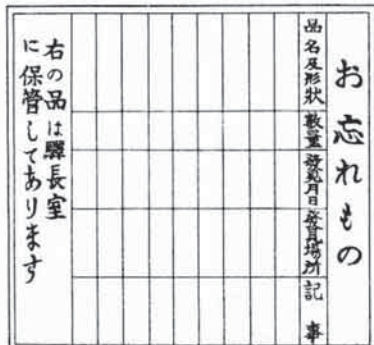 お忘れもの
品名及形状
数量
発見月日
発見場所
記事
右の品は驛長室
に保管してあります